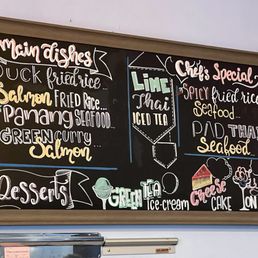 main dishes
DUCK fried rice...
Salmon FRIED RICE...
Panang SEAFOOD...
GREEN curry...
Salmon
LIME
Thai
ICED TEA
Chef's Special
SPICY fried rice
Seafood...
PAD THAI
Seafood...
Desserts
GREEN TEA
Ice-cream
CHEESE
CAKE
ON